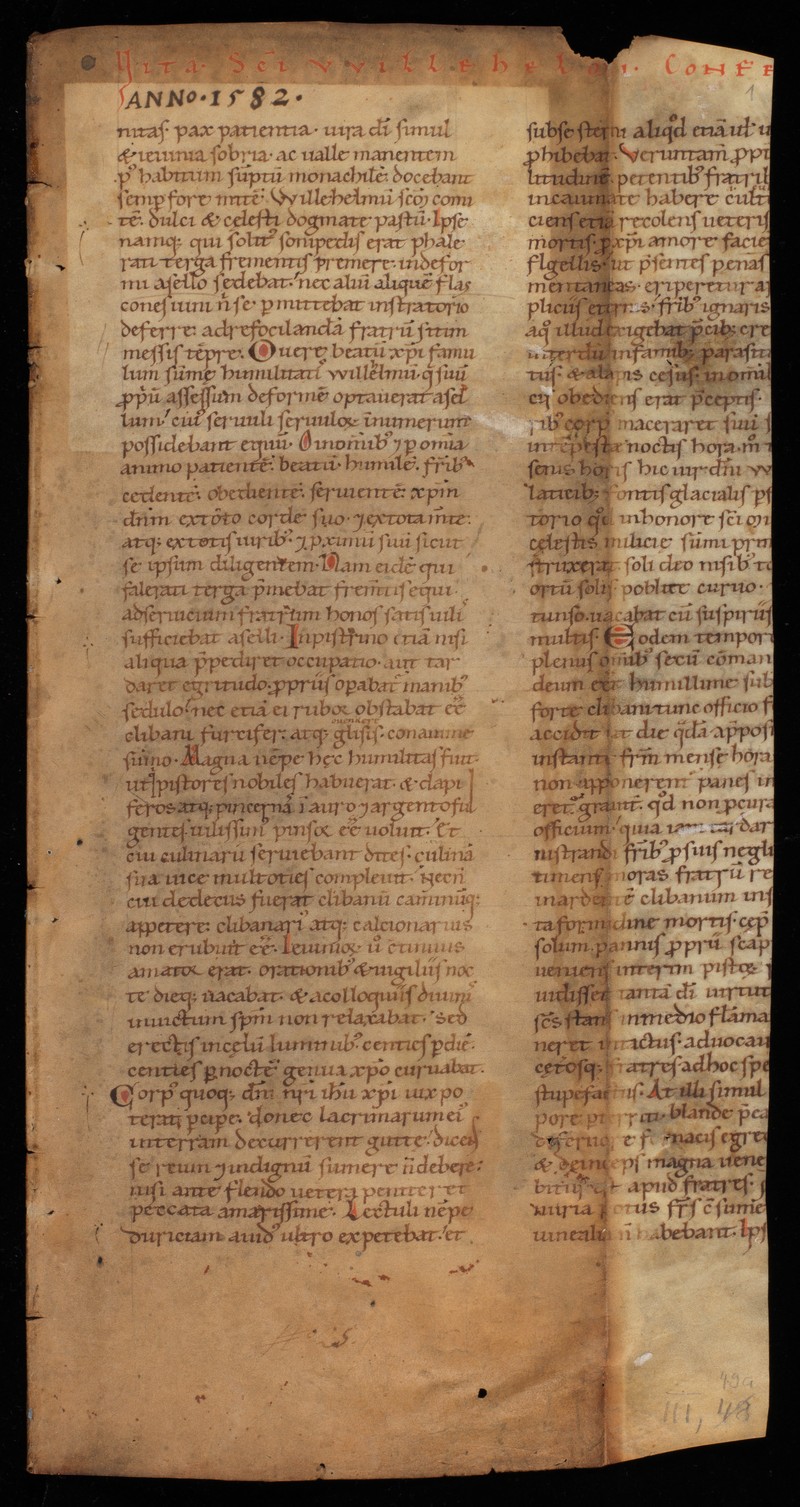 Vita Sci VVillehelmi. Conf
1
ANNO·1582·
nitas· pax patientia· uira di simul
& ieiunia sobria· ac ualle manentem
p habitum suptu monachile· docebant
semp fore mite· Willehelmu sco comi
te· dulci & celesti dogmate pastu· Ipse
namq; qui solit sonipedis erat phale
rati terga frementis premere· indefor
mi asello sedebat· nec alui aliquē flas
cones uini n se pmittebat instratorio
deferre· ad refocilandā fratrū sitim
messis tēpre· Ouere beatū xpi famu
lum sūme humilitati Willelmū· q suū
ppū assessum deformē optauerat asel
lum· cui seruuli seruulor innumerum
possidebant equū· O inomib' 7 p omia
animo patientē· beatū· humilē· frib'
cedentē· obedientē· seruientē· xpm
dnm extoto corde suo· 7 extota mte·
atq; extotis uirib'· 7 pximū suū sicut
se ipsum diligentem· Nam eidē qui
falerati terga pmebat fremtis equi
adseruicium fratrum honos satis uili
sufficiebat aselli· Inpistrino etiā nisi
aliqua ppediret occupatio· aut tar
daret egritudo· ppriis opabat manib'
sedulo· nec etiā ei rubor obstabat eē
clibani furcifer· atq; glisis conamine
sūmo· Magna nēpe hec humilitas fuit·
ut q pistores nobiles habuerat· & dapi
feros atq; pincernā ī auro 7 argento ful
gentes uilissim' pinsor eē uoluit· Et
cui culinarū seruiebant dites· culinā
sua uice multoties compleuit· Necn
cui dedecus fuerat clibanū caminūq;
appetere· clibanari' atq; calcionarius
non erubuit eē· Ieiunior u continuus
amator erat· orationib' & uigiliis noc
te dieq; uacabat· & acolloquiis diuini
inuictum spm non relaxabat· Sed
erectis incelū luminib' centies p diē·
centies p noctē genua xpo curuabat·
Corp' quoq; dni nri ihu xpi uix po
terat pcipe· donec lacrimarum ei
interram decurrerent gutte· dicens
se reum 7 indignū sumere n debere·
nisi ante flendo uetera peniteret
peccata amarissime· Lectuli nēpe
duriciam auid' ultro expetebat· et
subse sterni aliqd etiā uil u
phibebat· Veruntam ppt
litudine petentib' fratrib
incaminate habere cult
ciens etiā recolens ueteris
mortis· p xpi amore facie
flgellis ut psentes penas
mentaneas· eriperetur a
plicius eternis· frib' ignaris
aq illud exigebat pcib; cre
infamib; parasita
tus· & alapis cesus· inomi
ei obediens erat pceptis·
rib' corp' maceraret sui s
intēpesta noctis hora· m
senus horis hic uir dni W
laticib; fontis glacialis ps
torio qd inhonore sci ori
celestis milicie sūmi prin
struxerat soli deo nisib' to
ortū solis poblite curuo·
tunso· uacabat cū suspiriis
multis· Eodem tempor
plenus omib' secū cōman
deum eet humillime sub
forte clibani tunc officio f
accidit ut die qdā appos
instanti frm mense hora
non apponerent panes in
eret graunt· qd non pcura
officium· quia iam tardar
nistrandi frib' p suis negli
timens moras fratrū re
inardente clibanum ins
ta formidine mortis· cep
solum pannis pprū scap
ueniens interim pistor
uidisset tantā di uirtut
scs stans inmedio flāma
neret intactus· aduocau
ceterosq; fratres ad hoc spe
stupefactis· At illi simul
pore blande pca
deseruo fornacis egre
& deinceps magna uene
bitus est apud fratres·
nuria potus frs c sume
uinealia n habebant· Ips
49a
III, 48